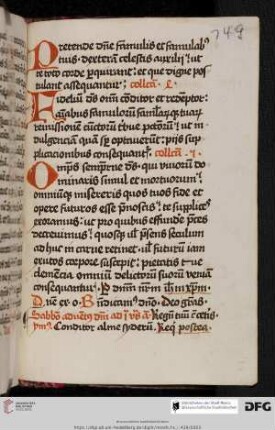 749
Pretende dne famulis et famulab9
tuis dexteram celestis auxilij ut
te toto corde perquirant et que digne pos
tulant assequantur collecta
Fidelium ds oim conditor et redemptor
aiabus famulorum famularumq tuarum
remissionem cunctorum tribue petorum ut in
dulgenciam quam semper optauerunt pijs sup
plicacionibus consequantur collecta
Omps sempiterne ds qui viuorum do
minaris simul et mortuorum
omniumq misereris quos tuos fide et
opere futuros esse pnoscis te supplices
exoramus ut pro quibus effundere preces
decreuimus quosq vel presens seculum
adhuc in carne retinet vel futurum iam
exutos corpore suscepit pietatis tue
clemencia omnium delictorum suorum veniam
consequantur P dnm nrm ihm xpm
Dne ex o Bndicamus dno Deo gras
Sabbo aduentus dni ad
ymnus Conditor alme syderum Req postea
DFG